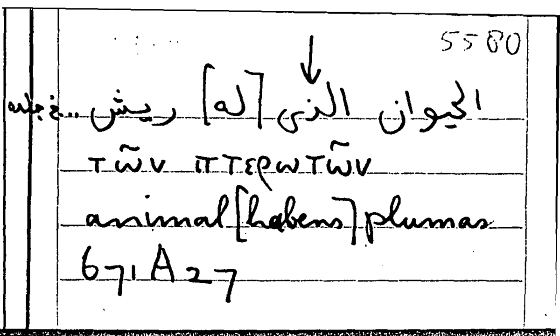 5580
الحيوان الذى [له] ريش .. فى جلده
τῶν πτερωτῶν
animal [habens] plumas
671A27